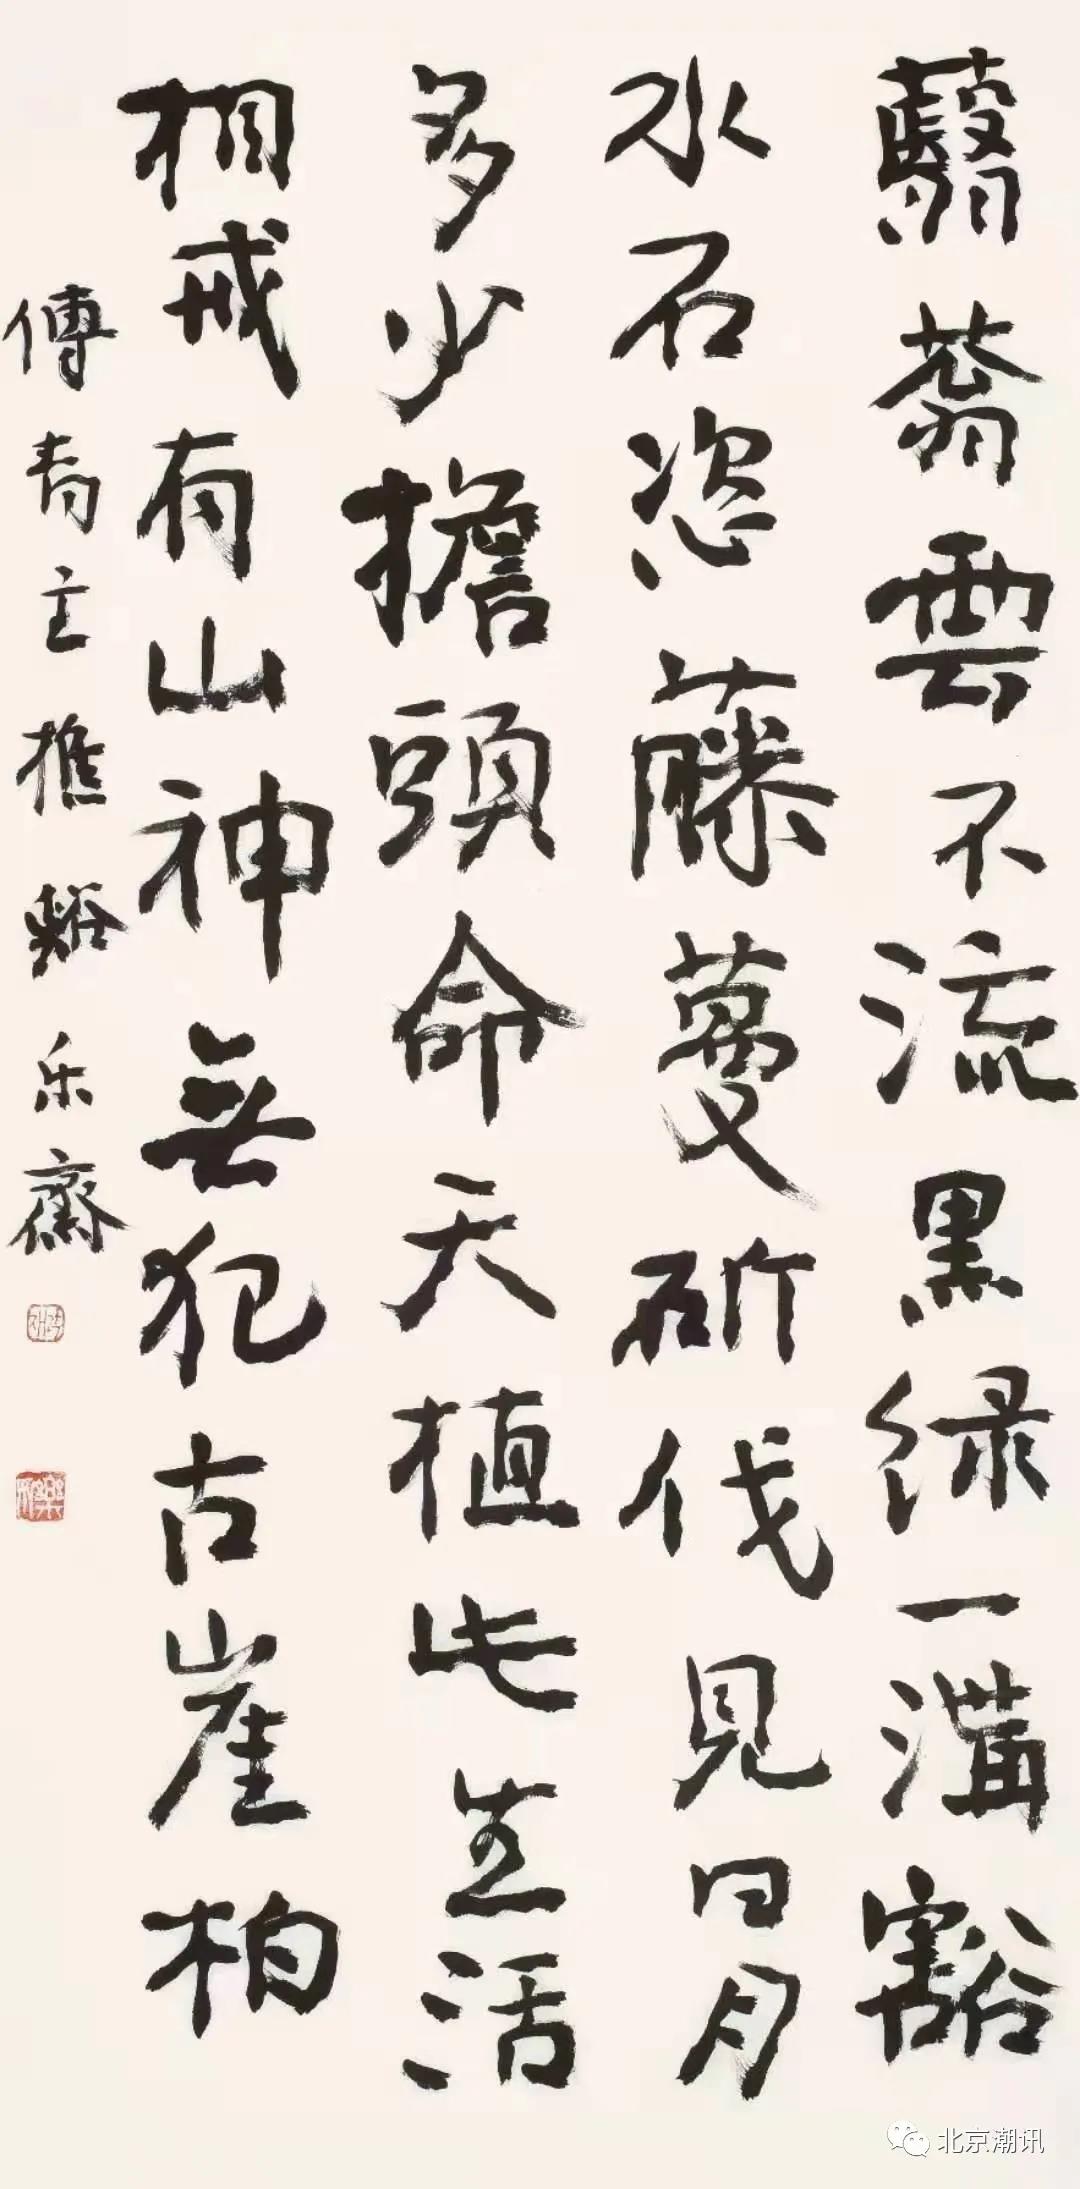 蘙蓊雲不流黑緑一溝豁
水石恣藤蔓斫伐見日月
多少擔頭命天植此生活
相戒有山神無犯古崖柏
傅青主樵谿乐齋
北京潮讯